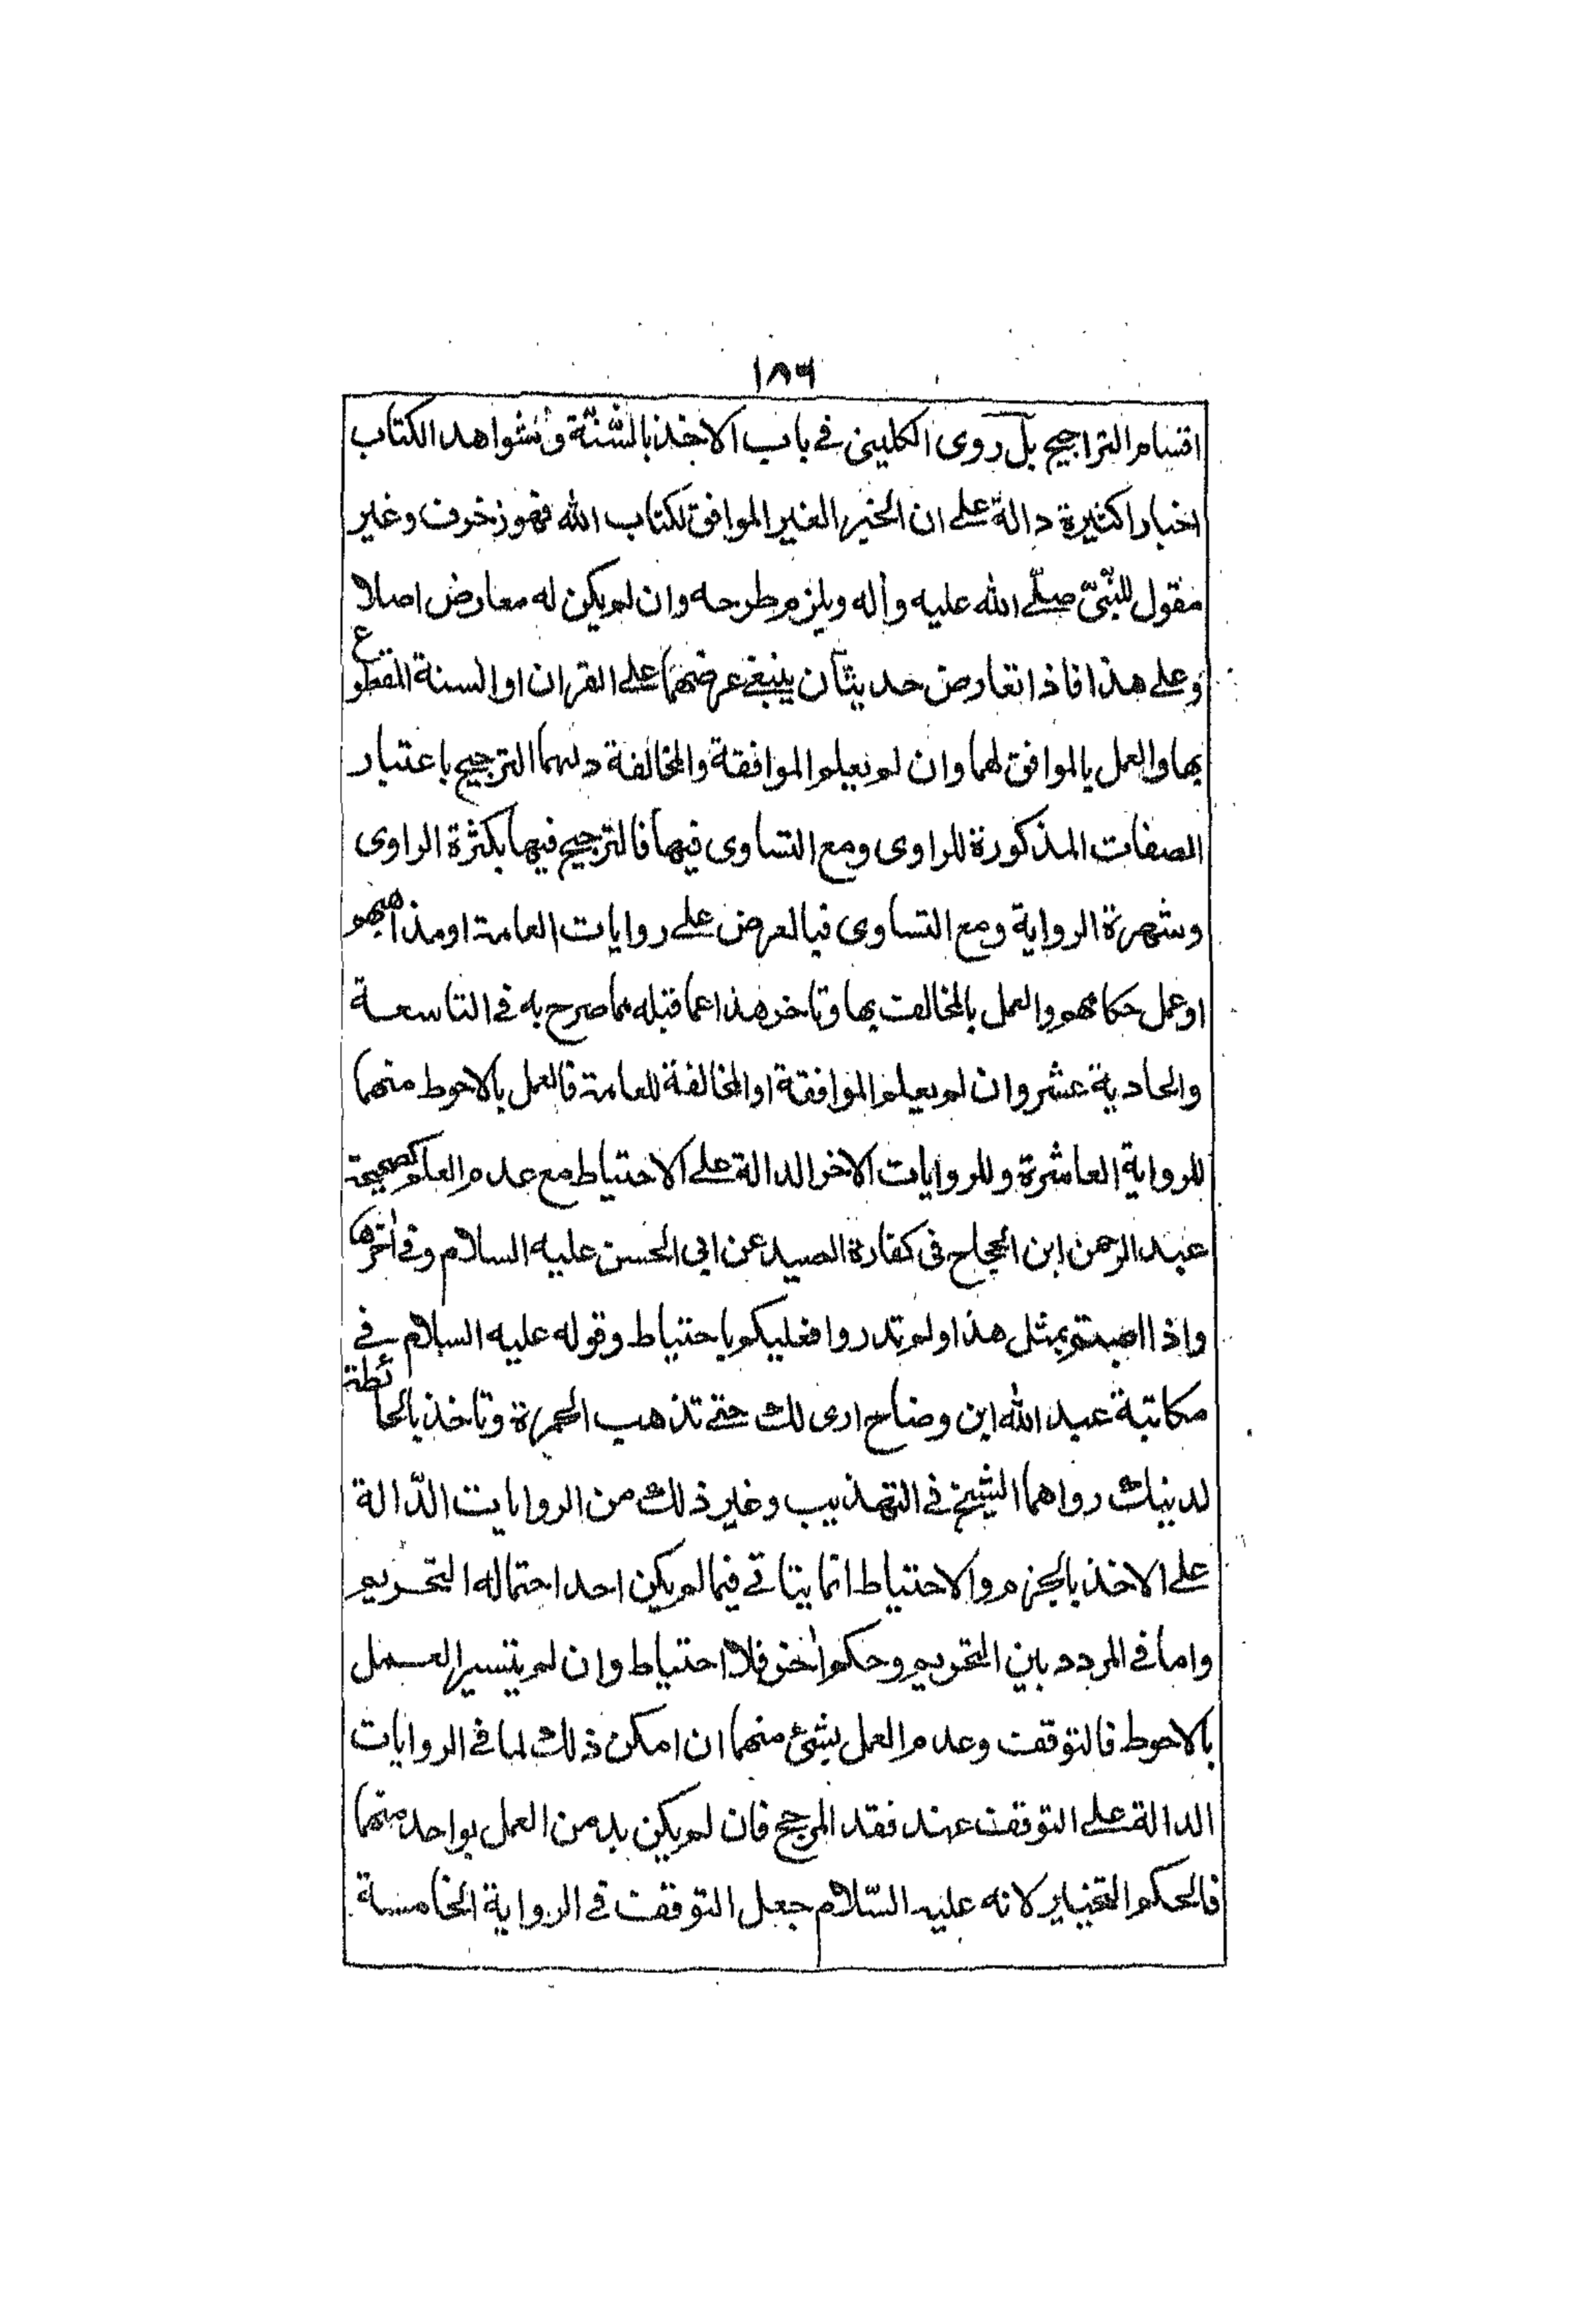 ١٨٦
اقسام التراجيح بل روى الكلينى فى باب الاخذ بالسّنّة وشواهد الكتاب
اخبارا كثيرة دالة على ان الخبر الغير الموافق لكتاب الله فهو زخرف وغير
مقول للنّبىّ صلّى الله عليه واله ويلزم طرحه وان لم يكن له معارض اصلا
وعلى هذا فاذا تعارض حديثان ينبغى عرضهما على القران او السنة المقطوع
بها والعمل بالموافق لهما وان لم يعلم الموافقة والمخالفة الترجيح باعتبار
الصفات المذكورة للراوى ومع التساوى فيها فالترجيح فيها بكثرة الراوى
وشهرة الرواية ومع التساوى فبالعرض على روايات العامة او مذاهبهم
او عمل حكامهم والعمل بالمخالف بها وتاخر هذا عما قبله مما صرح به فى التاسعة
والحادية عشر وان لم يعلم الموافقة او المخالفة للعامة فالعمل بالاحوط منهما
للرواية العاشرة وللروايات الاخر الدالة على الاحتياط مع عدم العلم كصحيحة
عبد الرحمن ابن الحجاج فى كفارة الصيد عن ابى الحسن عليه السلام وفى اخرها
واذا اصبتم بمثل هذا ولم تدروا فعليكم باحتياط وقوله عليه السلام فى
مكاتبة عبد الله ابن وضاح ارى لك حتى تذهب الحمرة وتاخذ بالحائطة
لدينك رواهما الشيخ فى التهذيب وغير ذلك من الروايات الدّالة
على الاخذ بالجزم والاحتياط انما يتاتى فيما لم يكن احد احتماله التحريم
واما فى المردد بين التحريم وحكم اخر فلا احتياط وان لم يتيسر العمل
بالاحوط فالتوقف وعدم العمل بشئ منهما ان امكن ذلك لما فى الروايات
الدالة على التوقف عند فقد المرجح فان لم يكن بد من العمل بواحد منهما
فالحكم التخيير لانه عليه السّلام جعل التوقف فى الرواية الخامسة